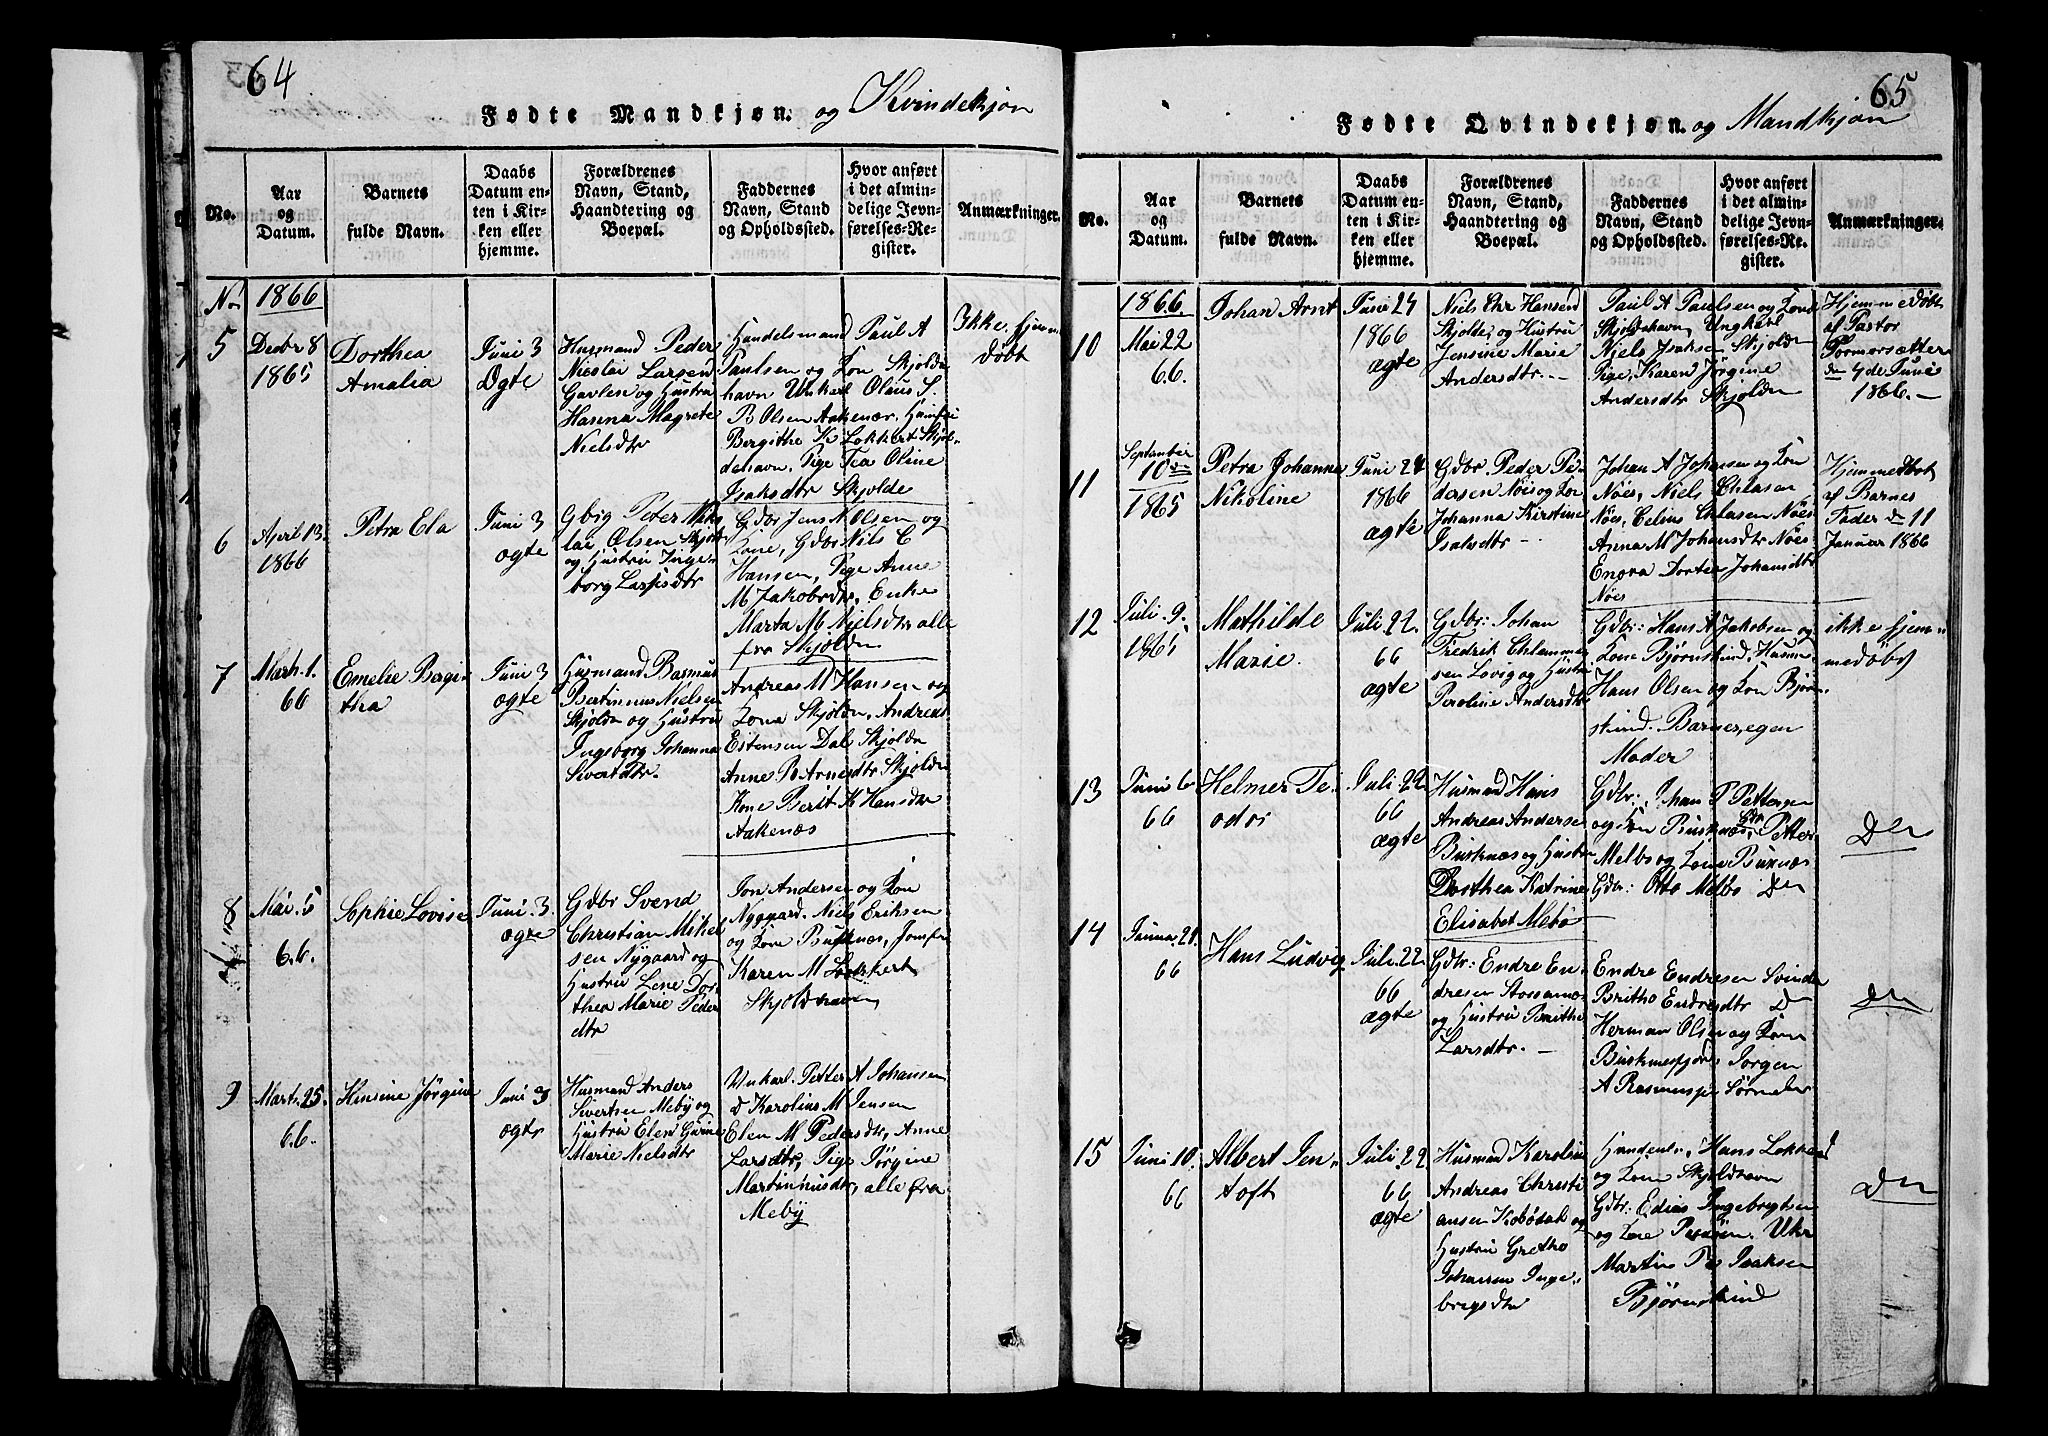 64
Fødte Mandkjøn. og Kvindekjøn
No.
Aar
og
Datum.
Barnets
fulde Navn.
Daabs
Datum en-
ten i Kir-
ken eller
hjemme.
Forældrenes
Navn, Stand,
Haandtering og
Boepæl.
Faddernes
Navn, Stand
og Opholdssted.
Hvor anført
i det almin-
delige Jevn-
førelses-Re-
gister.
Anmærkninger.
No
1866
5
Decbr 8
1865
Dorthea
Amalia
Juni 3
Ægte
Husmand Peder
Nicolai Larsen
og Hustru
Hanna Magrete
Nielsdtr
Handelsmand Paul A
Paulsen og Kon Skjolde
havn Unkarl Olaus S.
B Olsen Aakenær, Jomfru
Bergithe K Lokkert Skjol-
dehavn, Pige Tea Oline
Isaksdtr Skjolde
Ikke hjem
døbt
6
April 13.
1866
Petra Ela
Juni 3
ægte
Gbrg Peter Niko
lai Olsen Skjold
og Hustru Inge-
borg Larsdtr
Gdbr Jens N Olsen og
Kone, Gdbr Nils C
Hansen, Pige Anne
M Jakobsdtr, Enke
Marta M Nielsdtr alle
fra Skjolden
7
Marts 1.
66
Emelie Bergi
tha
Juni 3
ægte
Husmand Rasmus
Bertinnus Nielsen
Skjolde og Hustru
Ingeborg Johanna
Sivertdtr.
Andreas M Hansen og
Kona Skjolden, Andreas
Estensen Dal Skjolde
Anne B Arnesdtr Skjolde
Kone Berit K Hansdtr
Aakenæs
8
Mai. 5
66.
Sophie Lovise
Juni 3.
ægte
Gdbr Svend
Christian Mikel
sen Nygaard og
Hustru Lene Dor
thea Marie Peder
dtr
Jon Andersen og Kon
Nygaard. Niels Eriksen
og Kone Buknæs, Jomfru
Karen M Lokkert
Skjoldhavn
9
Marts 25.
66.
Hensine Jørgine
Juni 3
ægte
Husmand Anders
Sivertsen Meby og
Hustru Elen Gurine
Marie Nielsdtr
Unkarl. Petter A Johansen
D Karolius M Jensen
Elen M Pedersdtr, Anne
Larsdtr, Pige Jørgine
Martinnusdtr, alle fra
Meby
65
Fødte Qvindekjøn. og Mandkjøn
No.
Aar
og
Datum.
Barnets
fulde Navn.
Daabs
Datum en-
ten i Kir-
ken eller
hjemme.
Forældrenes
Navn, Stand,
Haandtering og
Boepæl.
Faddernes
Navn, Stand
og Opholdssted.
Hvor anført
i det almin-
delige Jevn-
førelses-Re-
gister.
Anmærkninger.
1866.
10
Mai 22
66.
Johan Arnt
Juni 24
1866
ægte
Niels Chr Hansen
Skjolde, og Hustru
Jensine Marie
Andersdtr. -
Paul A Paulsen og Kone
Skjoldehavn, Ungkarl
Niels Isaksen Skjolden
Pige, Karen Jörgine
Andersdtr Skjolden
Hjemmedøbt
af Pastor
Pormorsætter
den 4de Juni
1866. -
11
September
10de
1865
Petra Johanna
Nikoline
Juni 24
1866
ægte
Gdbr. Peder Pe-
dersen Nøes og Kon
Johanna Kirstine
Isaksdtr -
Johan A Johansen og Kon
Nöes, Niels Chlasen
Nöes, Celius Chlasen Nöes
Anna M Johansdtr Nöes
Enora Dortea Johansdtr
Nöes
Hjemmedøbt
af Barnes
Fader den 11
Januar 1866
12
Juli. 9.
1865
Mathilde
Marie.
Juli 22.
66
ægte
Gdbr: Johan
Fredrik Chlemme
sen Lovig og Hustru
Peroline Andersdtr
Gdbr: Hans A Jakobsen og
Kone Bjørnskind, Husm:
Hans Olsen og Kon Bjørn
skind. Barnes, egen
Moder
ikke hjem-
medöbt
13
Juni 6
66
Helmer Te-
odor
Juli 22
66
ægte
Husmand Hans
Andreas Anderse
Buknæs og Hustru
Dorthea Katrine
Elisabet Mebø
Gdbr: Johan P Pettersen
og Kon Buknæs, Gbr Petter
Melbo og Kone Buknæs
Gdbr: Otto Melbo Do
Do
14
Januar 21
66
Hans Ludvig
Juli. 22.
66
ægte
Gdbr: Endre En-
dresen Stossannes
og Hustru Brithe
Larsdtr. -
Endre Endresen Svindal
Britho Endresdtr Do
Herman Olsen og Kone
Buknesfjord Jorgen
A Rasmusen
Do
15
Juni 10.
66
Albert Jen-
toft
Juli. 22
66
ægte
Husmand Karolius
Andreas Christi
ansen Kobbedal og
Hustru Gretho
Johanna Inge-
brigsdtr
Handenl. Hans Lokkert
og Kone Skjoldhavn
Gdbr: Edias Ingebrigtsen
og Kone Unkr
Martin P Isaksen
Bjørnskind
Do